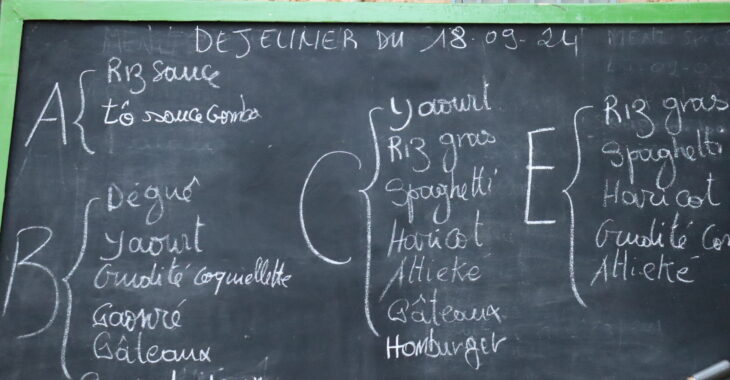 DEJEUNER DU 18-09-24
A
Riz sauce
tô sauce Gombo
B
Dégué
Yaourt
Crudité Coquillette
Gaonré
Gâteaux
C
Yaourt
Riz gras
Spaghetti
Haricot
Attieké
Gâteaux
Hamburger
E
Riz gras
Spaghetti
Haricot
Crudité Co
Attieké